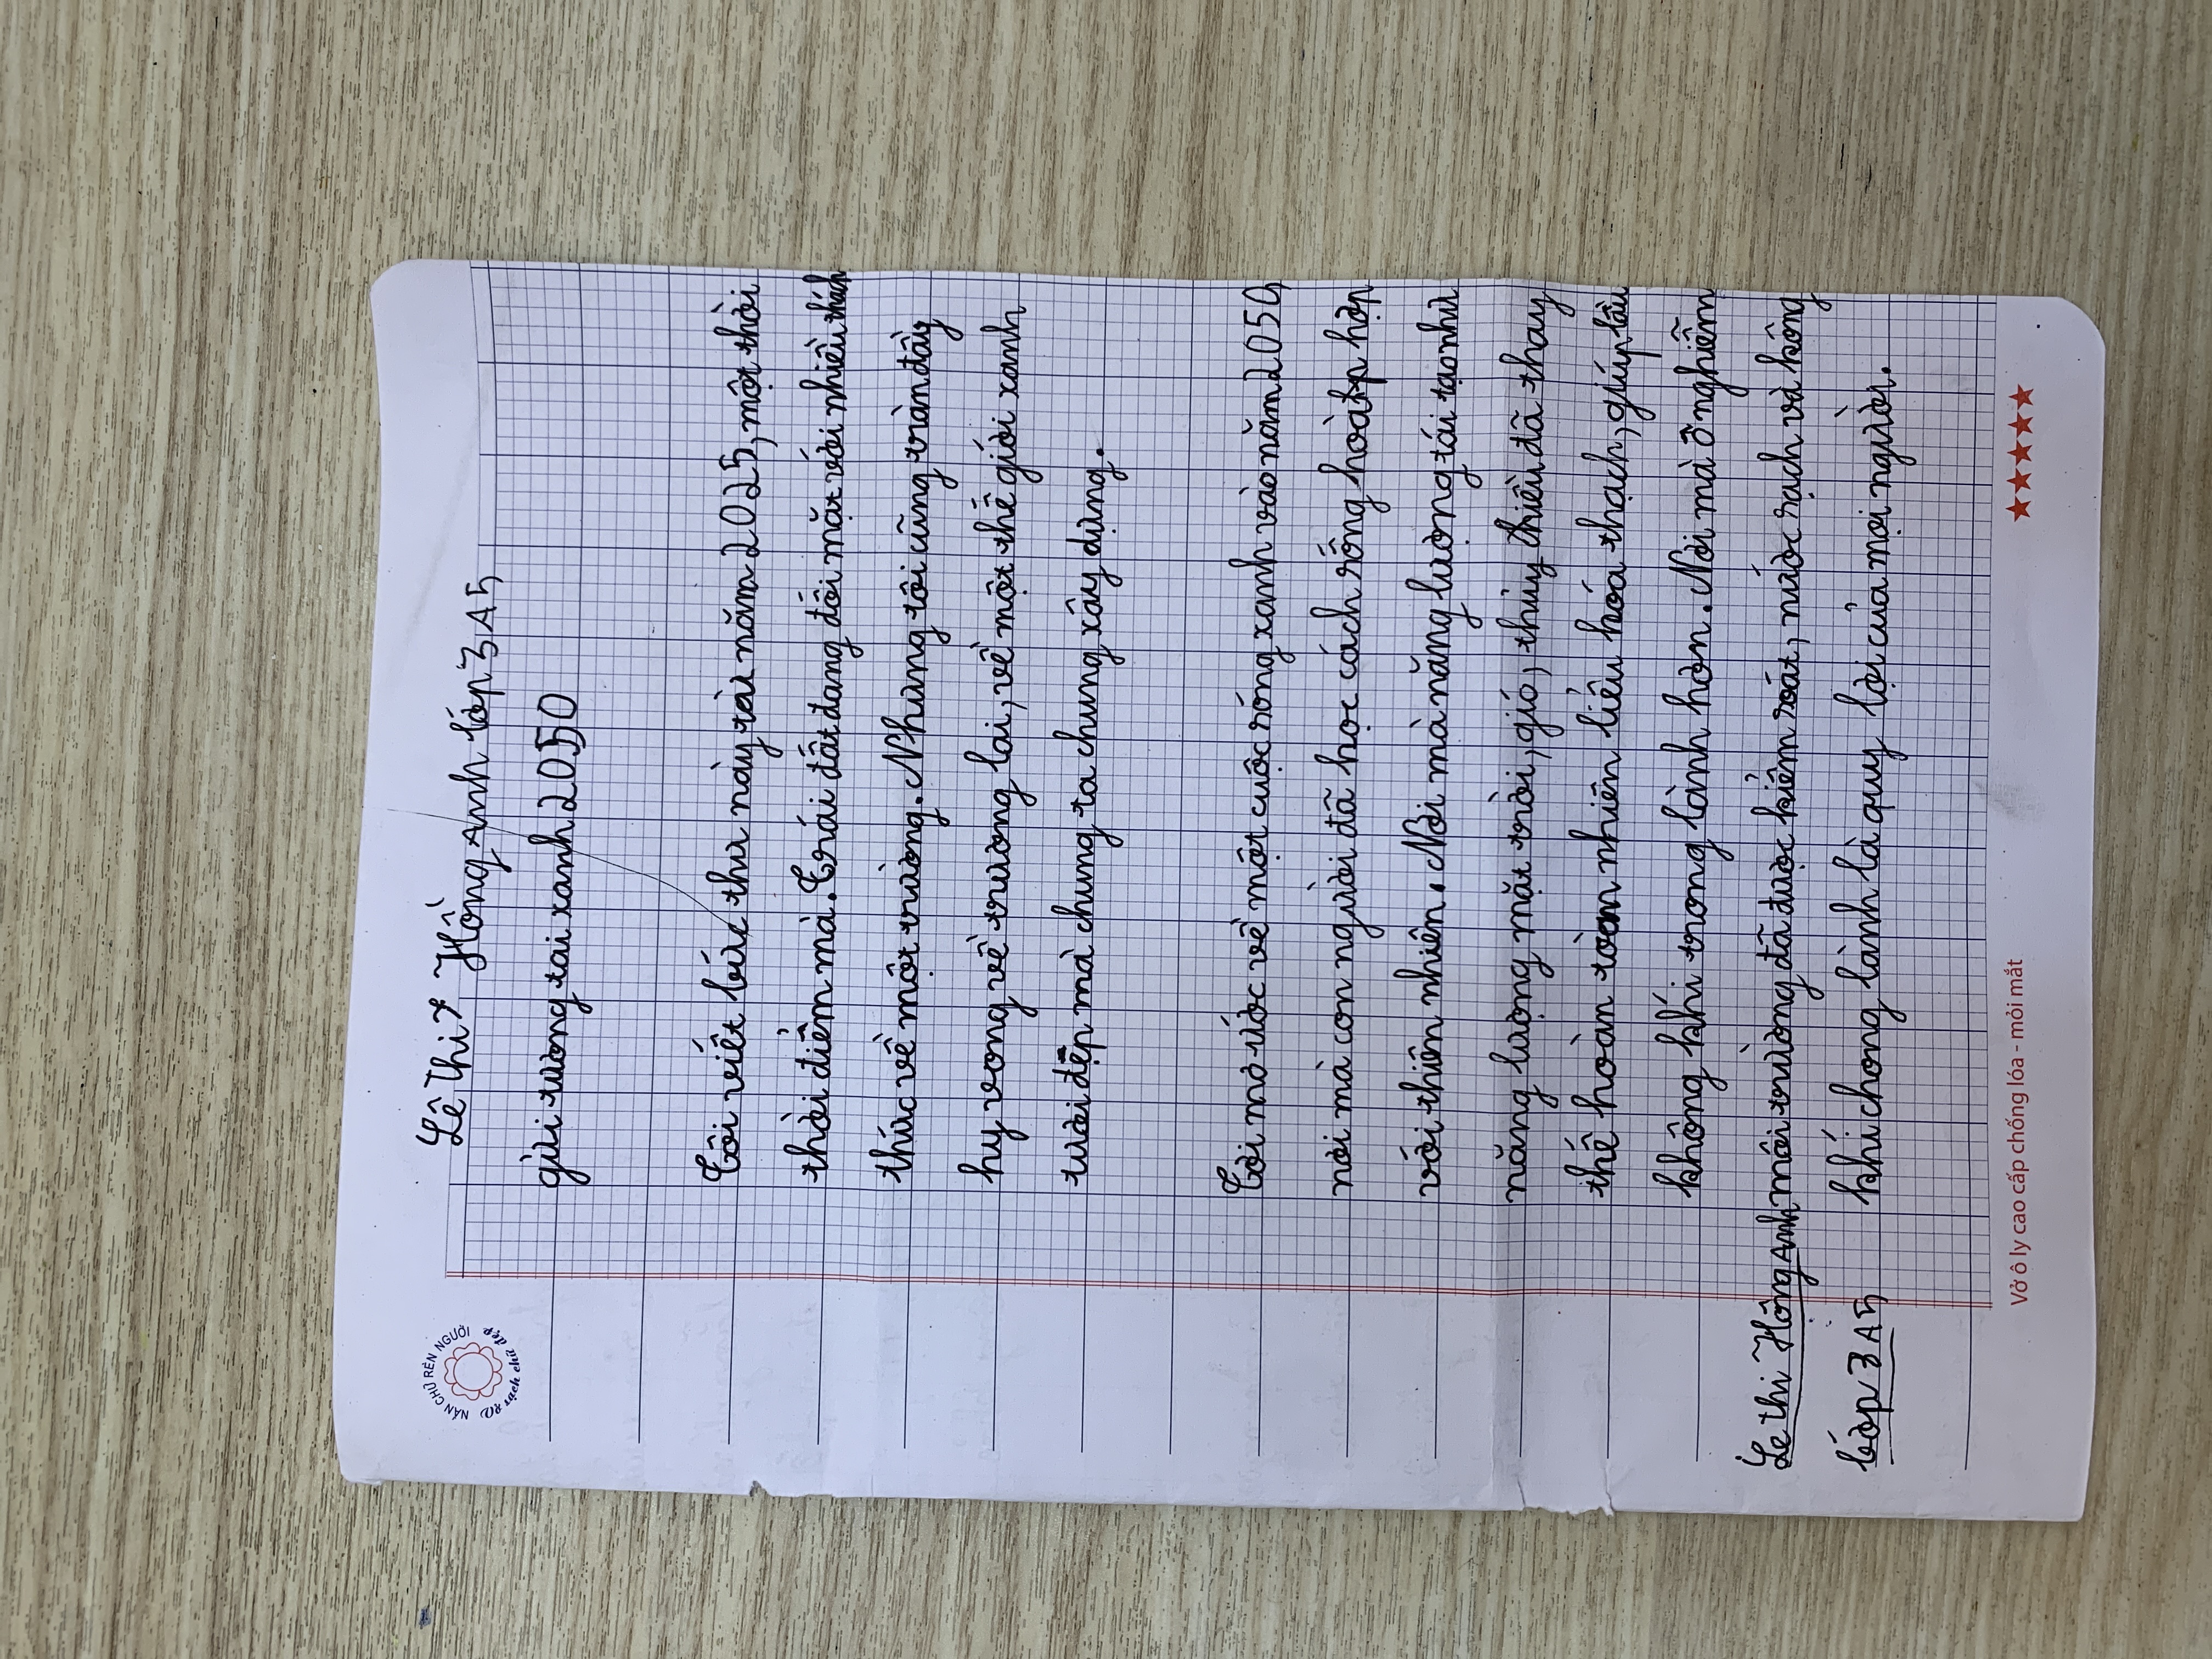 NẮN CHỮ RÈN NGƯỜI
Vở sạch chữ đẹp
Lê Thị Hồng Anh lớp 3A5
gửi tương tai xanh 2050
Tôi viết bức thư này từ năm 2025, một thời
thời điểm mà. Trái đất đang đối mặt với nhiều thách
thức về một trường. Nhưng tôi cũng tràn đầy
hy vong về tương lai, về một thế giới xanh
tươi đẹp mà chung ta chung xây dựng.
Tôi mơ ước về một cuộc sóng xanh vào năm 2050
nơi mà con người đã học cách sống hoà hợp
với thiên nhiên. Nơi mà năng lương tái tạo như
năng lượng mặt trời, gió, thủy thiều đã thay
thế hoàn toàn nhiên liệu hóa thạch, giúp bầu
không khí trong lành hơn. Nơi mà ô nghiễm
môi trường đã được kiểm soát, nước sạch và không
khí chong lành là quy lợi của mọi người.
Le thi Hồng Anh
Lớp 3A5
Vở ô ly cao cấp chống lóa - mỏi mắt